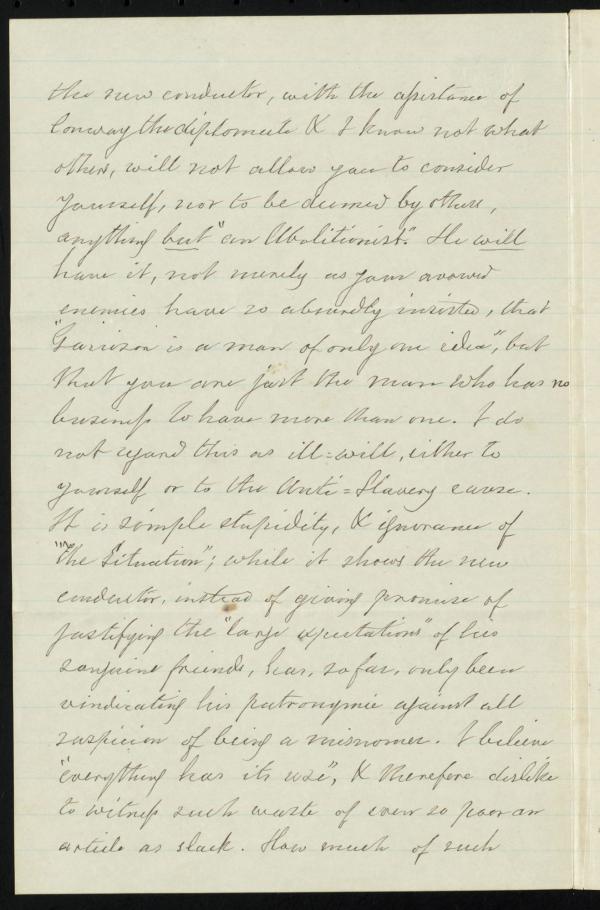 the new conductor, with the assistance of
Conway the diplomate & I know not what
others, will not allow you to consider
yourself, nor to be deemed by others,
anything but "an Abolitionist". He will
have it, not merely as your avowed
enemies have so absurdly insisted, that
"Garrison is a man of only one idea", but
that you are just the man who has no
business to have more than one. I do
not regard this as ill=will, either to
yourself or to the Anti=Slavery cause.
It is simple stupidity, & ignorance of
"the Situation"; while it shows the new
conductor, instead of giving promise of
justifying the "large expectations" of his
sanguine friends, has, so far, only been
vindicating his patronymic against all
suspicion of being a misnomer. I believe
"everything has its use", & therefore dislike
to witness such waste of even so poor an
article as slack. How much of such